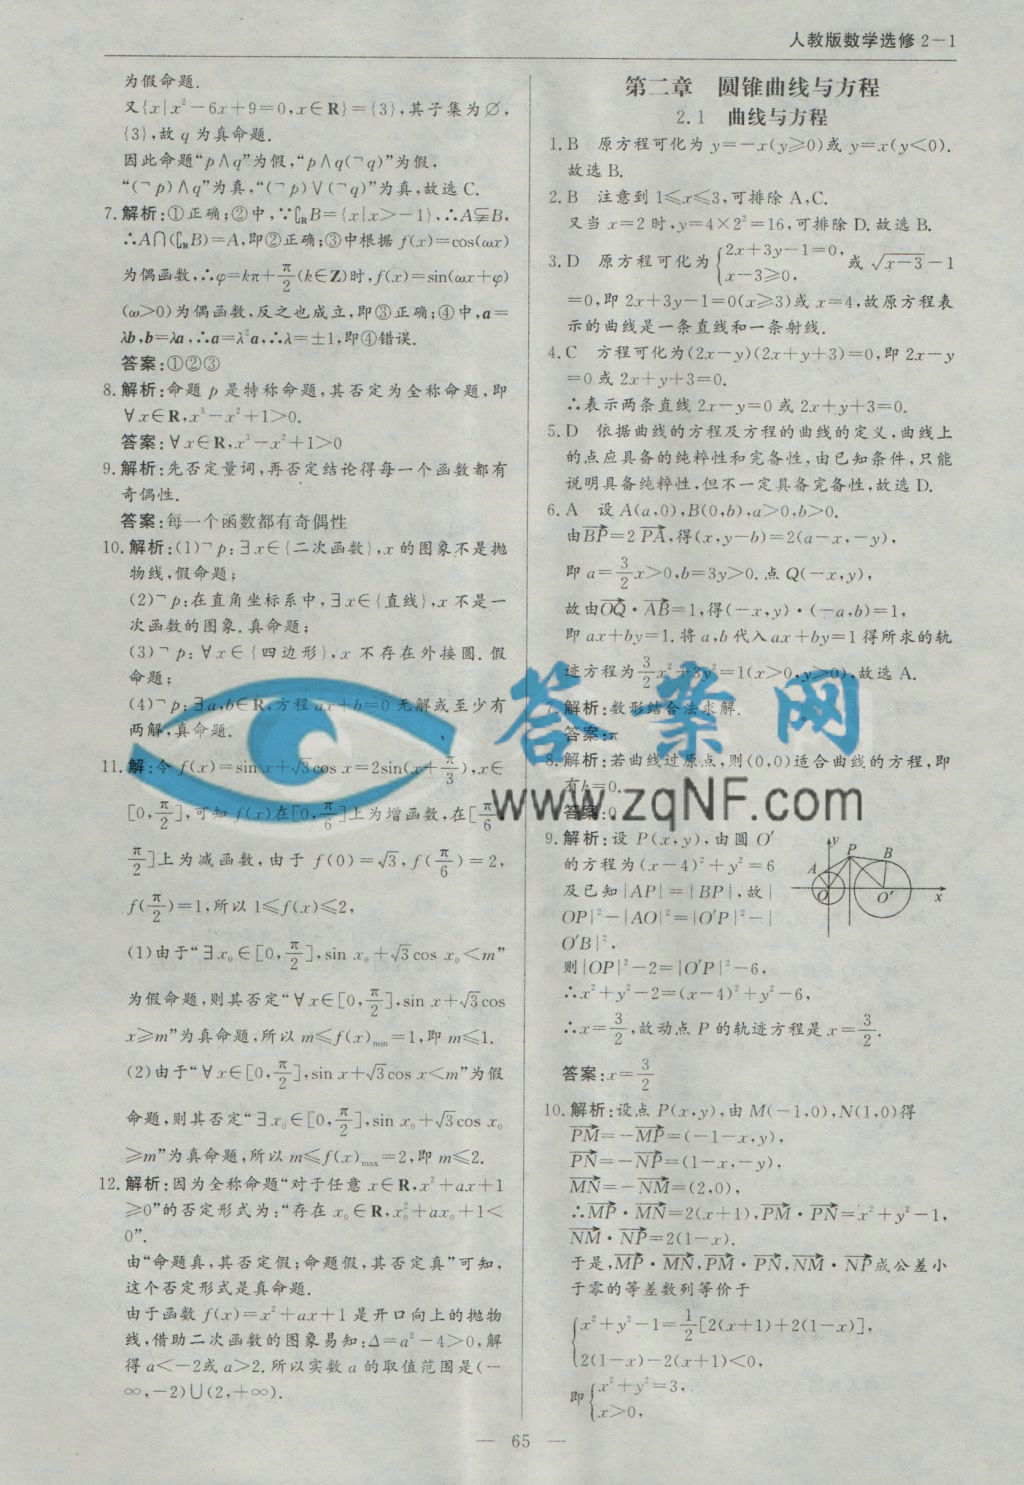 人教版数学选修2—1
为假命题.
又{x|x²-6x+9=0,x∈R}={3},其子集为∅,
{3},故q为真命题.
因此命题“p∧q”为假,“p∧q(¬q)”为假,
“(¬p)∧q”为真,“(¬p)∨(¬q)”为真,故选C.
7.解析:①正确;②中,∵∁RB={x|x>-1},∴A⫋B,
∴A∩(∁RB)=A,即②正确;③中根据f(x)=cos(ωx)
为偶函数,∴φ=kπ+π/2(k∈Z)时,f(x)=sin(ωx+φ)
(ω>0)为偶函数,反之也成立,即③正确;④中,a=
λb,b=λa,∴a=λ²a,∴λ=±1,即④错误.
答案:①②③
8.解析:命题p是特称命题,其否定为全称命题,即
∀x∈R,x³-x²+1>0.
答案:∀x∈R,x³-x²+1>0
9.解析:先否定量词,再否定结论得每一个函数都有
奇偶性.
答案:每一个函数都有奇偶性
10.解析:(1)¬p:∃x∈{二次函数},x的图象不是抛
物线,假命题;
(2)¬p:在直角坐标系中,∃x∈{直线},x不是一
次函数的图象.真命题;
(3)¬p:∀x∈{四边形},x不存在外接圆.假
命题;
(4)¬p:∃a,b∈R,方程ax+b=0无解或至少有
两解,真命题.
11.解:令f(x)=sin x+√3cos x=2sin(x+π/3),x∈
[0,π/2],可知f(x)在[0,π/6]上为增函数,在[π/6,
π/2]上为减函数,由于f(0)=√3,f(π/6)=2,
f(π/2)=1,所以1≤f(x)≤2,
(1)由于“∃x₀∈[0,π/2],sin x₀+√3cos x₀<m”
为假命题,则其否定“∀x∈[0,π/2],sin x+√3cos
x≥m”为真命题,所以m≤f(x)min=1,即m≤1.
(2)由于“∀x∈[0,π/2],sin x+√3cos x<m”为假
命题,则其否定“∃x₀∈[0,π/2],sin x₀+√3cos x₀
≥m”为真命题,所以m≤f(x)max=2,即m≤2.
12.解析:因为全称命题“对于任意x∈R,x²+ax+1
≥0”的否定形式为:“存在x₀∈R,x₀²+ax₀+1<
0”.
由“命题真,其否定假;命题假,其否定真”可知,
这个否定形式是真命题.
由于函数f(x)=x²+ax+1是开口向上的抛物
线,借助二次函数的图象易知:Δ=a²-4>0,解
得a<-2或a>2.所以实数a的取值范围是(-
∞,-2)∪(2,+∞).
第二章 圆锥曲线与方程
2.1 曲线与方程
1.B 原方程可化为y=-x(y≥0)或y=x(y<0).
故选B.
2.B 注意到1≤x≤3,可排除A,C.
又当x=2时,y=4×2²=16,可排除D.故选B.
3.D 原方程可化为{2x+3y-1=0, x-3≥0, 或√(x-3)-1
=0,即2x+3y-1=0(x≥3)或x=4,故原方程表
示的曲线是一条直线和一条射线.
4.C 方程可化为(2x-y)(2x+y+3)=0,即2x-y
=0或2x+y+3=0.
∴表示两条直线2x-y=0或2x+y+3=0.
5.D 依据曲线的方程及方程的曲线的定义,曲线上
的点应具备的纯粹性和完备性,由已知条件,只能
说明具备纯粹性,但不一定具备完备性,故选D.
6.A 设A(a,0),B(0,b),a>0,b>0.
由BP→=2PA→,得(x,y-b)=2(a-x,-y),
即a=3/2x>0,b=3y>0.点Q(-x,y),
故由OQ→·AB→=1,得(-x,y)·(-a,b)=1,
即ax+by=1.将a,b代入ax+by=1得所求的轨
迹方程为3/2x²+3y²=1(x>0,y>0),故选A.
7.解析:数形结合法求解.
答案:π
8.解析:若曲线过原点,则(0,0)适合曲线的方程,即
有k=0.
答案:0
9.解析:设P(x,y),由圆O′
的方程为(x-4)²+y²=6
及已知|AP|=|BP|,故|
OP|²-|AO|²=|O′P|²-|
O′B|²,
则|OP|²-2=|O′P|²-6,
∴x²+y²-2=(x-4)²+y²-6,
∴x=3/2,故动点P的轨迹方程是x=3/2.
答案:x=3/2
y
P
B
A
O
O′
x
10.解析:设点P(x,y),由M(-1,0),N(1,0)得
PM→=-MP→=(-1-x,y),
PN→=-NP→=(1-x,-y),
MN→=-NM→=(2,0),
∴MP→·MN→=2(x+1),PM→·PN→=x²+y²-1,
NM→·NP→=2(1-x).
于是,MP→·MN→,PM→·PN→,NM→·NP→成公差小
于零的等差数列等价于
{x²+y²-1=1/2[2(x+1)+2(1-x)],
2(1-x)-2(x+1)<0,
即{x²+y²=3,
x>0,
答案网
www.zqNF.com
— 65 —